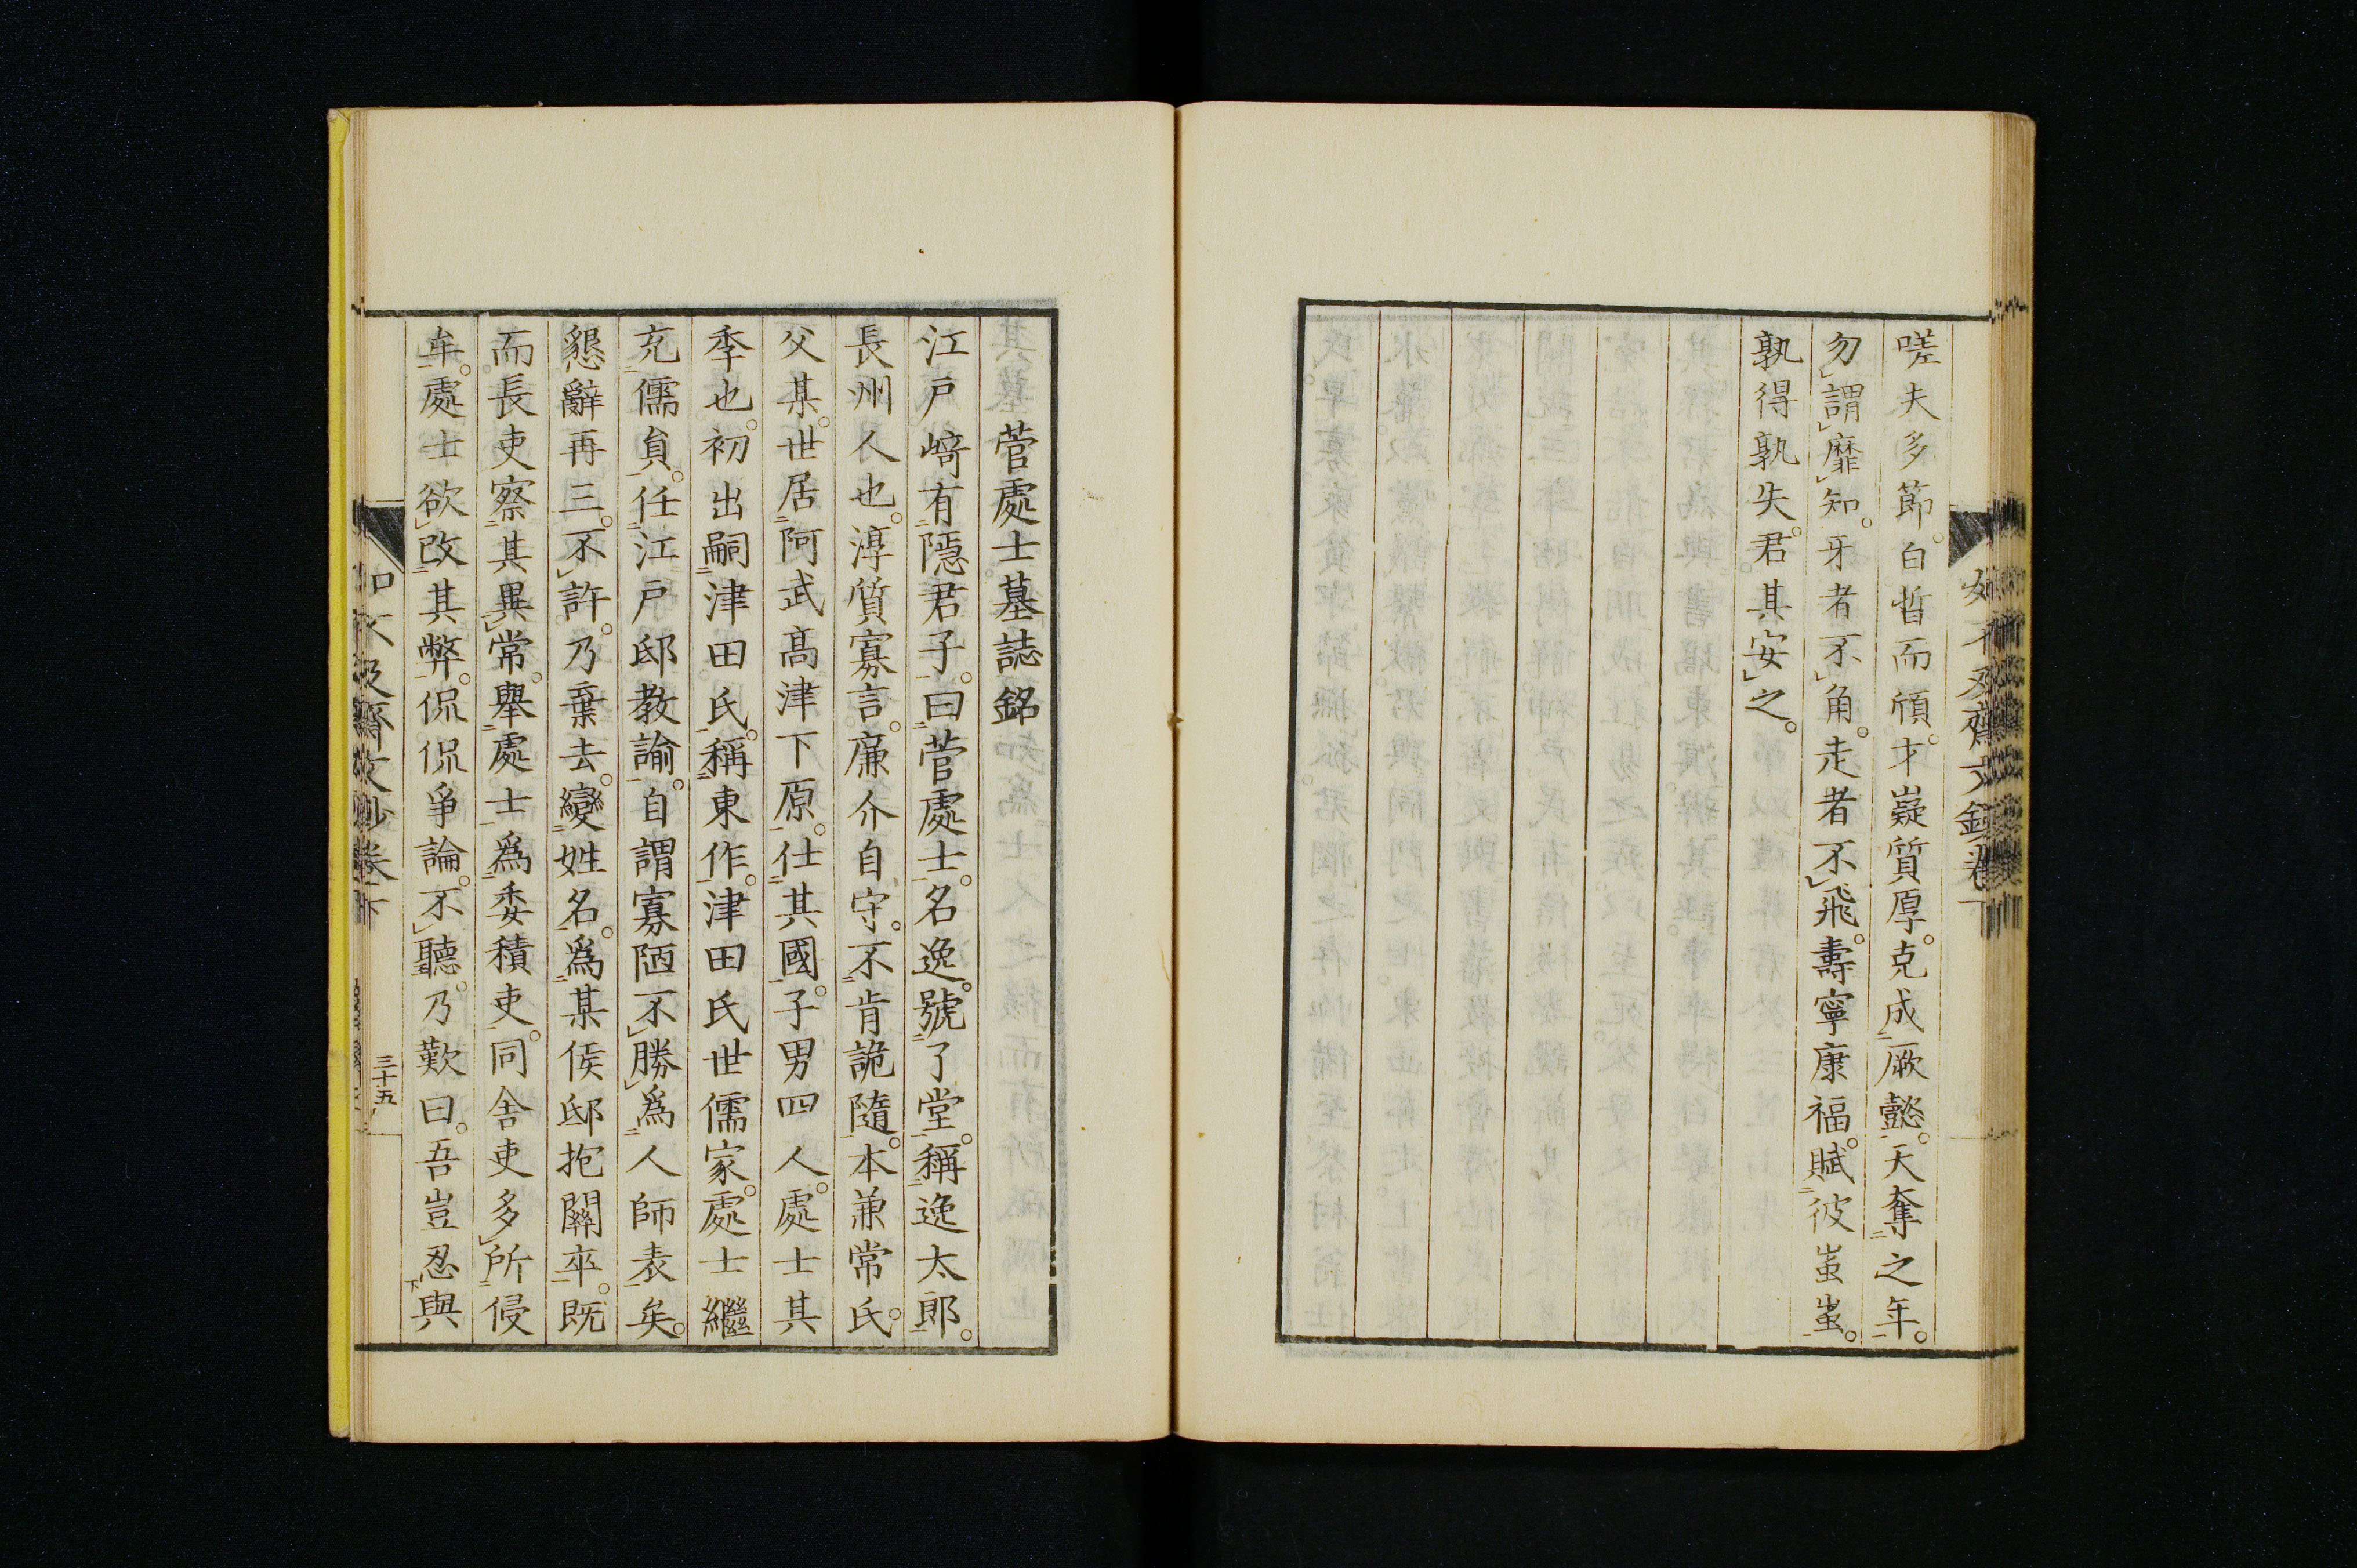 嗟夫多節。白晳而頎。才嶷質厚。克成厥懿。天奪之年。
勿謂靡知。牙者不角。走者不飛。壽寧康福。賦彼蚩蚩。
孰得孰失。君其安之。
菅處士墓誌銘
江戸﨑有隱君子。曰菅處士。名逸。號了堂。稱逸太郎。
長州人也。淳質寡言。廉介自守。不肯詭隨。本兼常氏。
父某。世居阿武髙津下原。仕其國。子男四人。處士其
季也。初出嗣津田氏。稱東作。津田氏世儒家。處士繼
充儒員。任江戸邸教諭。自謂寡陋不勝爲人師表矣。
懇辭再三。不許。乃棄去。變姓名。爲某侯邸抱關卒。既
而長吏察其異常。舉處士爲委積吏。同舎吏多所侵
牟。處士欲改其弊。侃侃爭論。不聽。乃歎曰。吾豈忍與
三十五